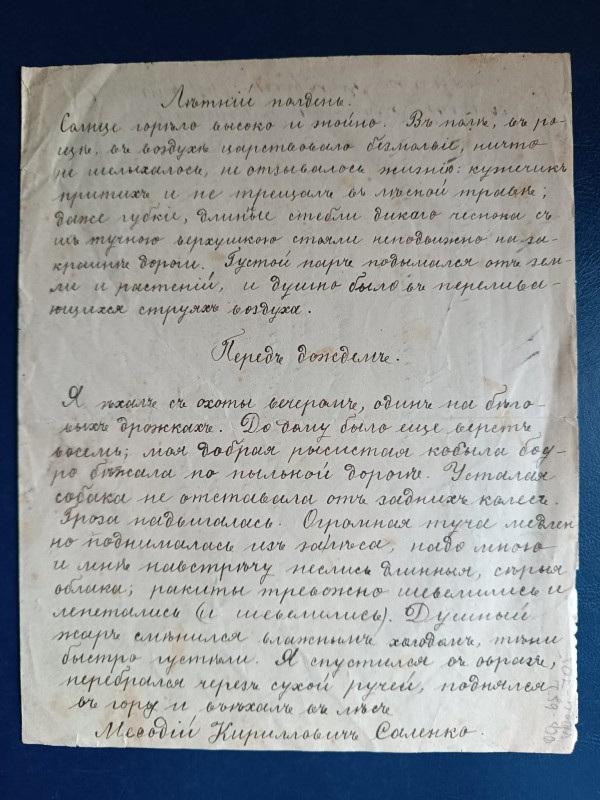 Лѣтній полдень.
Солнце горѣло высоко и знойно. Въ полѣ, въ ро-
щѣ, въ воздухѣ царствовало безмолвіе, ничто
не шелыхалось, не отзывалось жизнію: кузнечикъ
притихъ и не трещалъ въ лѣсной травкѣ;
даже губки, длинные стебли дикаго чеснока съ
ихъ тучною верхушкою стояли неподвижно на за-
краинѣ дороги. Густой паръ подымался отъ зем-
ли и растеній, и душно было въ перелива-
ющихся струяхъ воздуха.
Передъ дождемъ.
Я ѣхалъ съ охоты вечеромъ, одинъ на бѣго-
выхъ дрожкахъ. До дому было еще верстъ
восемь; моя добрая рысистая кобыла бод-
ро бѣжала по пыльной дорогѣ. Усталая
собака не отставала отъ заднихъ колесъ.
Гроза надвигалась. Огромная туча медлен
но поднималась изъ залѣса, надо мною
и мнѣ навстрѣчу неслись длинныя, сѣрыя
облака; ракиты тревожно шевелились и
лепетались (и шевелились). Душный
жаръ смѣнился влажнымъ холодомъ, тѣни
быстро густѣли. Я спустился въ оврагъ,
перебрался черезъ сухой ручей, поднялся
въ гору и въѣхалъ въ лѣсъ
Меѳодій Кирилловичъ Саленко.